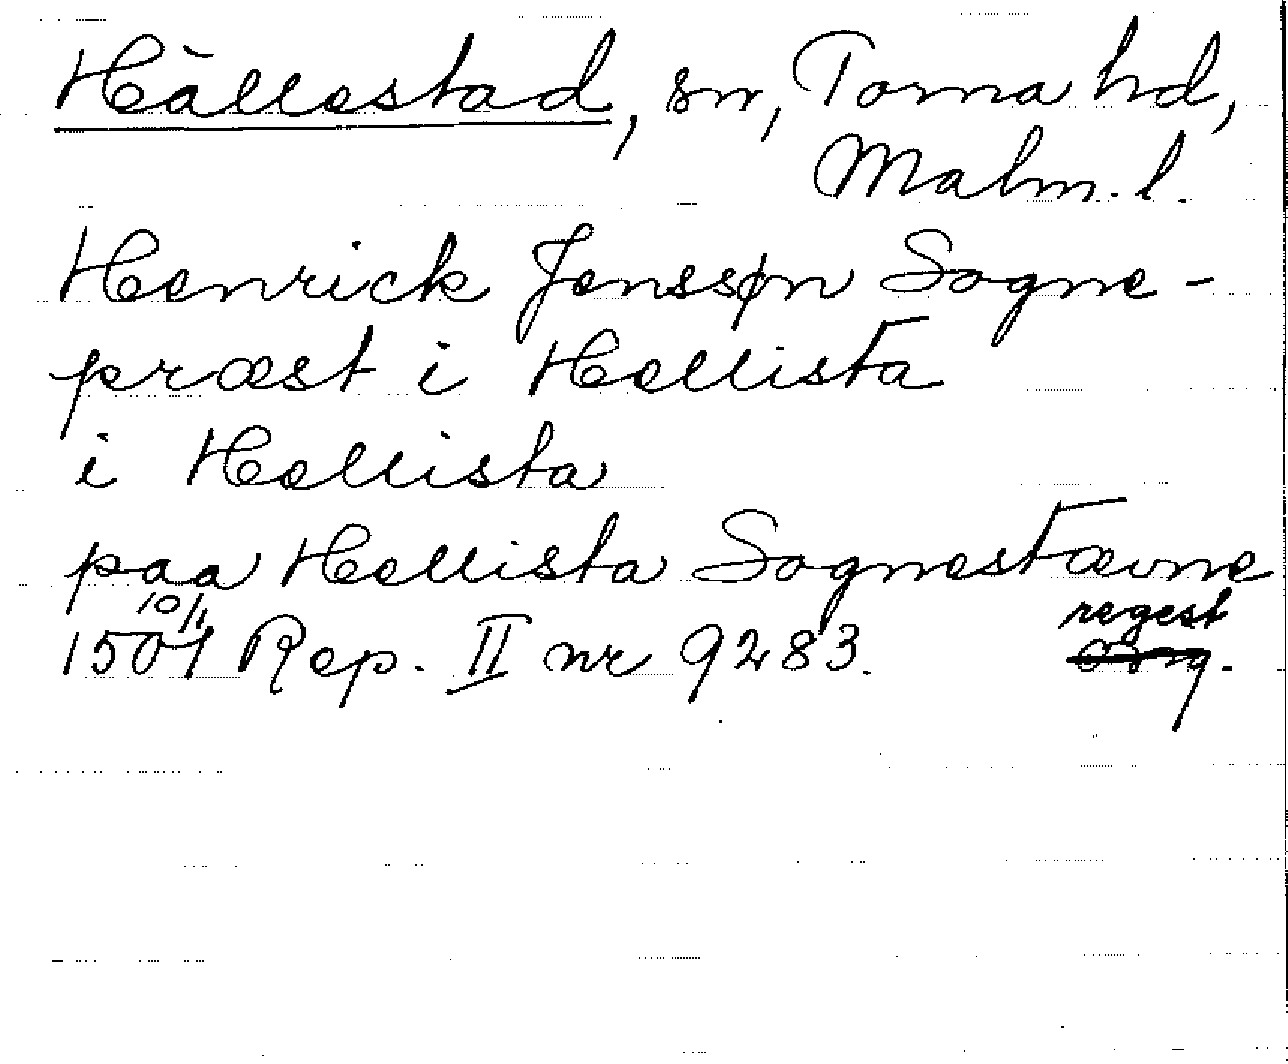 Hällestad, sn, Torna hd,
Malm. l.
Henrick Jenssøn Sogne-
præst i Hellista
i Hellista
paa Hellista Sognestævne
10/1
1507 Rep. II nr 9283. regest